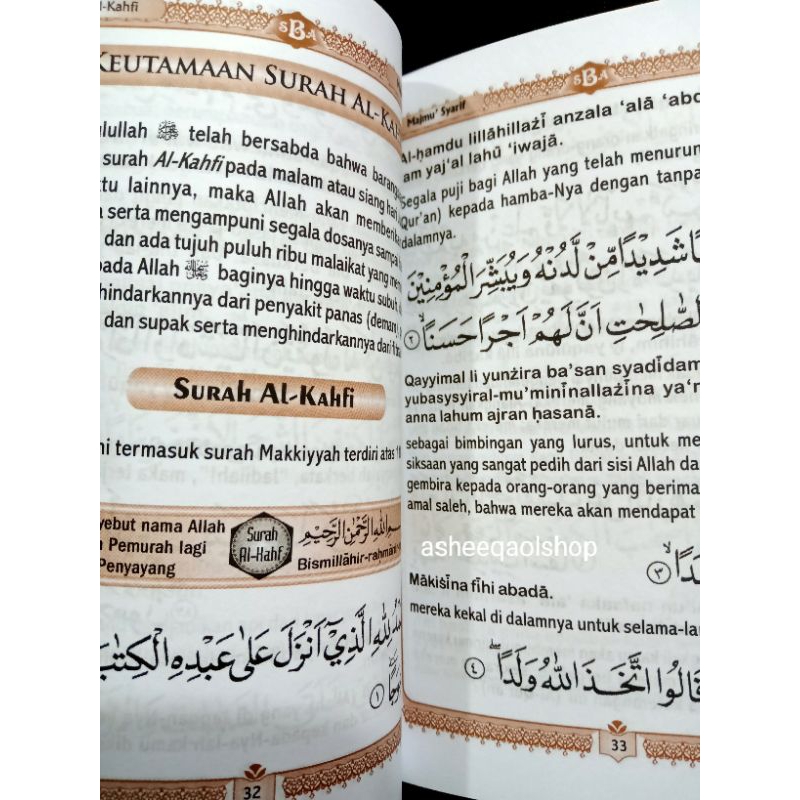 l-Kahfi
SBA
KEUTAMAAN SURAH AL-KAH
ulullah ﷺ telah bersabda bahwa barang
surah Al-Kahfi pada malam atau siang hari
tu lainnya, maka Allah akan memberika
a serta mengampuni segala dosanya sampai
dan ada tujuh puluh ribu malaikat yang mem
pada Allah ﷻ baginya hingga waktu subuh,
hindarkannya dari penyakit panas (demam),
dan supak serta menghindarkannya dari
SURAH AL-KAHFI
ni termasuk surah Makkiyyah terdiri atas 1
yebut nama Allah
Pemurah lagi
Penyayang
Surah
Al-Kahf
بِسْمِ اللهِ الرَّحْمٰنِ الرَّحِيْمِ
Bismillāhir-rahmān
مْدُ لِلّٰهِ الَّذِيْٓ اَنْزَلَ عَلٰى عَبْدِهِ الْكِتٰبَ
وَجًا ۜ ١
32
SBA
Majmu' Syarif
Al-ḥamdu lillāhillażī anzala ‘alā ‘abd
am yaj‘al lahū ‘iwajā.
Segala puji bagi Allah yang telah menurun
Qur'an) kepada hamba-Nya dengan tanpa
dalamnya.
ًا شَدِيْدًا مِّنْ لَّدُنْهُ وَيُبَشِّرَ الْمُؤْمِنِيْنَ
الصّٰلِحٰتِ اَنَّ لَهُمْ اَجْرًا حَسَنًاۙ ٢
Qayyimal li yunżira ba’san syadīdam
yubasysyiral-mu’minīnallażīna ya‘m
anna lahum ajran ḥasanā.
sebagai bimbingan yang lurus, untuk me
siksaan yang sangat pedih dari sisi Allah da
gembira kepada orang-orang yang berima
amal saleh, bahwa mereka akan mendapat
asheeqaolshop
بَدًاۙ ٣
Mākiṡīna fīhi abadā.
mereka kekal di dalamnya untuk selama-la
قَالُوا اتَّخَذَ اللّٰهُ وَلَدًاۖ ٤
33